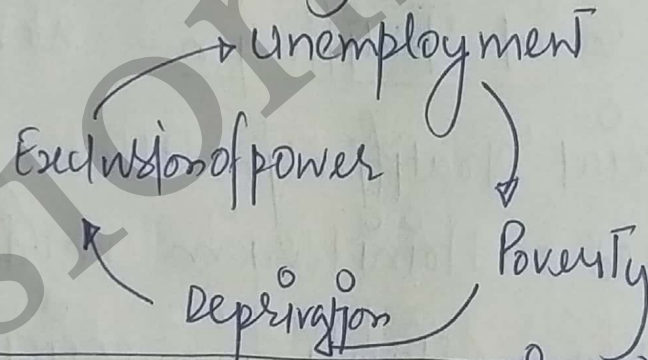 Unemployment
Exclusion of power
Poverty
Deprivation